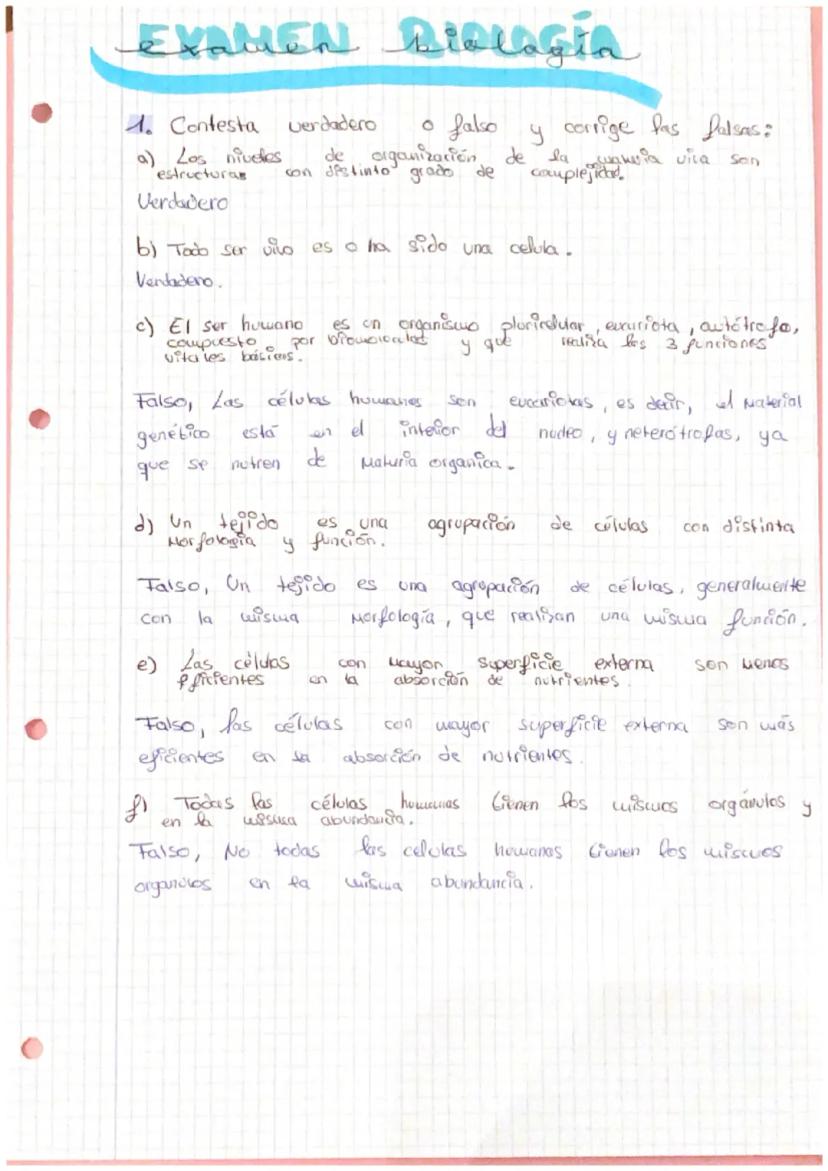 EXAMEN BIOLOGÍA
examen biología
1. Contesta verdadero o falso y corrige las falsas:
a) Los niveles de organización de la materia viva son
estructuras con distinto grado de complejidad.
Verdadero
b) Todo ser vivo es o ha sido una celula.
Verdadero.
c) El ser humano es un organismo pluricelular, eucariota, autótrofo,
compuesto por biomoleculas y que realiza los 3 funciones
vitales básicas.
Falso, Las células humanas son eucariotas, es decir, el material
genético está en el interior del nucleo, y heterótrofas, ya
que se nutren de materia organica.
d) Un tejido es una agrupación de células con distinta
morfología y función.
Falso, Un tejido es una agrupación de células, generalmente
con la misma morfología, que realizan una misma función.
e) Las células con mayor superficie externa son menos
eficientes en la absorción de nutrientes.
Falso, las células con mayor superficie externa son más
eficientes en la absorción de nutrientes.
f) Todas las células humanas tienen los mismos orgánulos y
en la misma abundancia.
Falso, No todas las celulas humanas tienen los mismos
organulos en la misma abundancia.